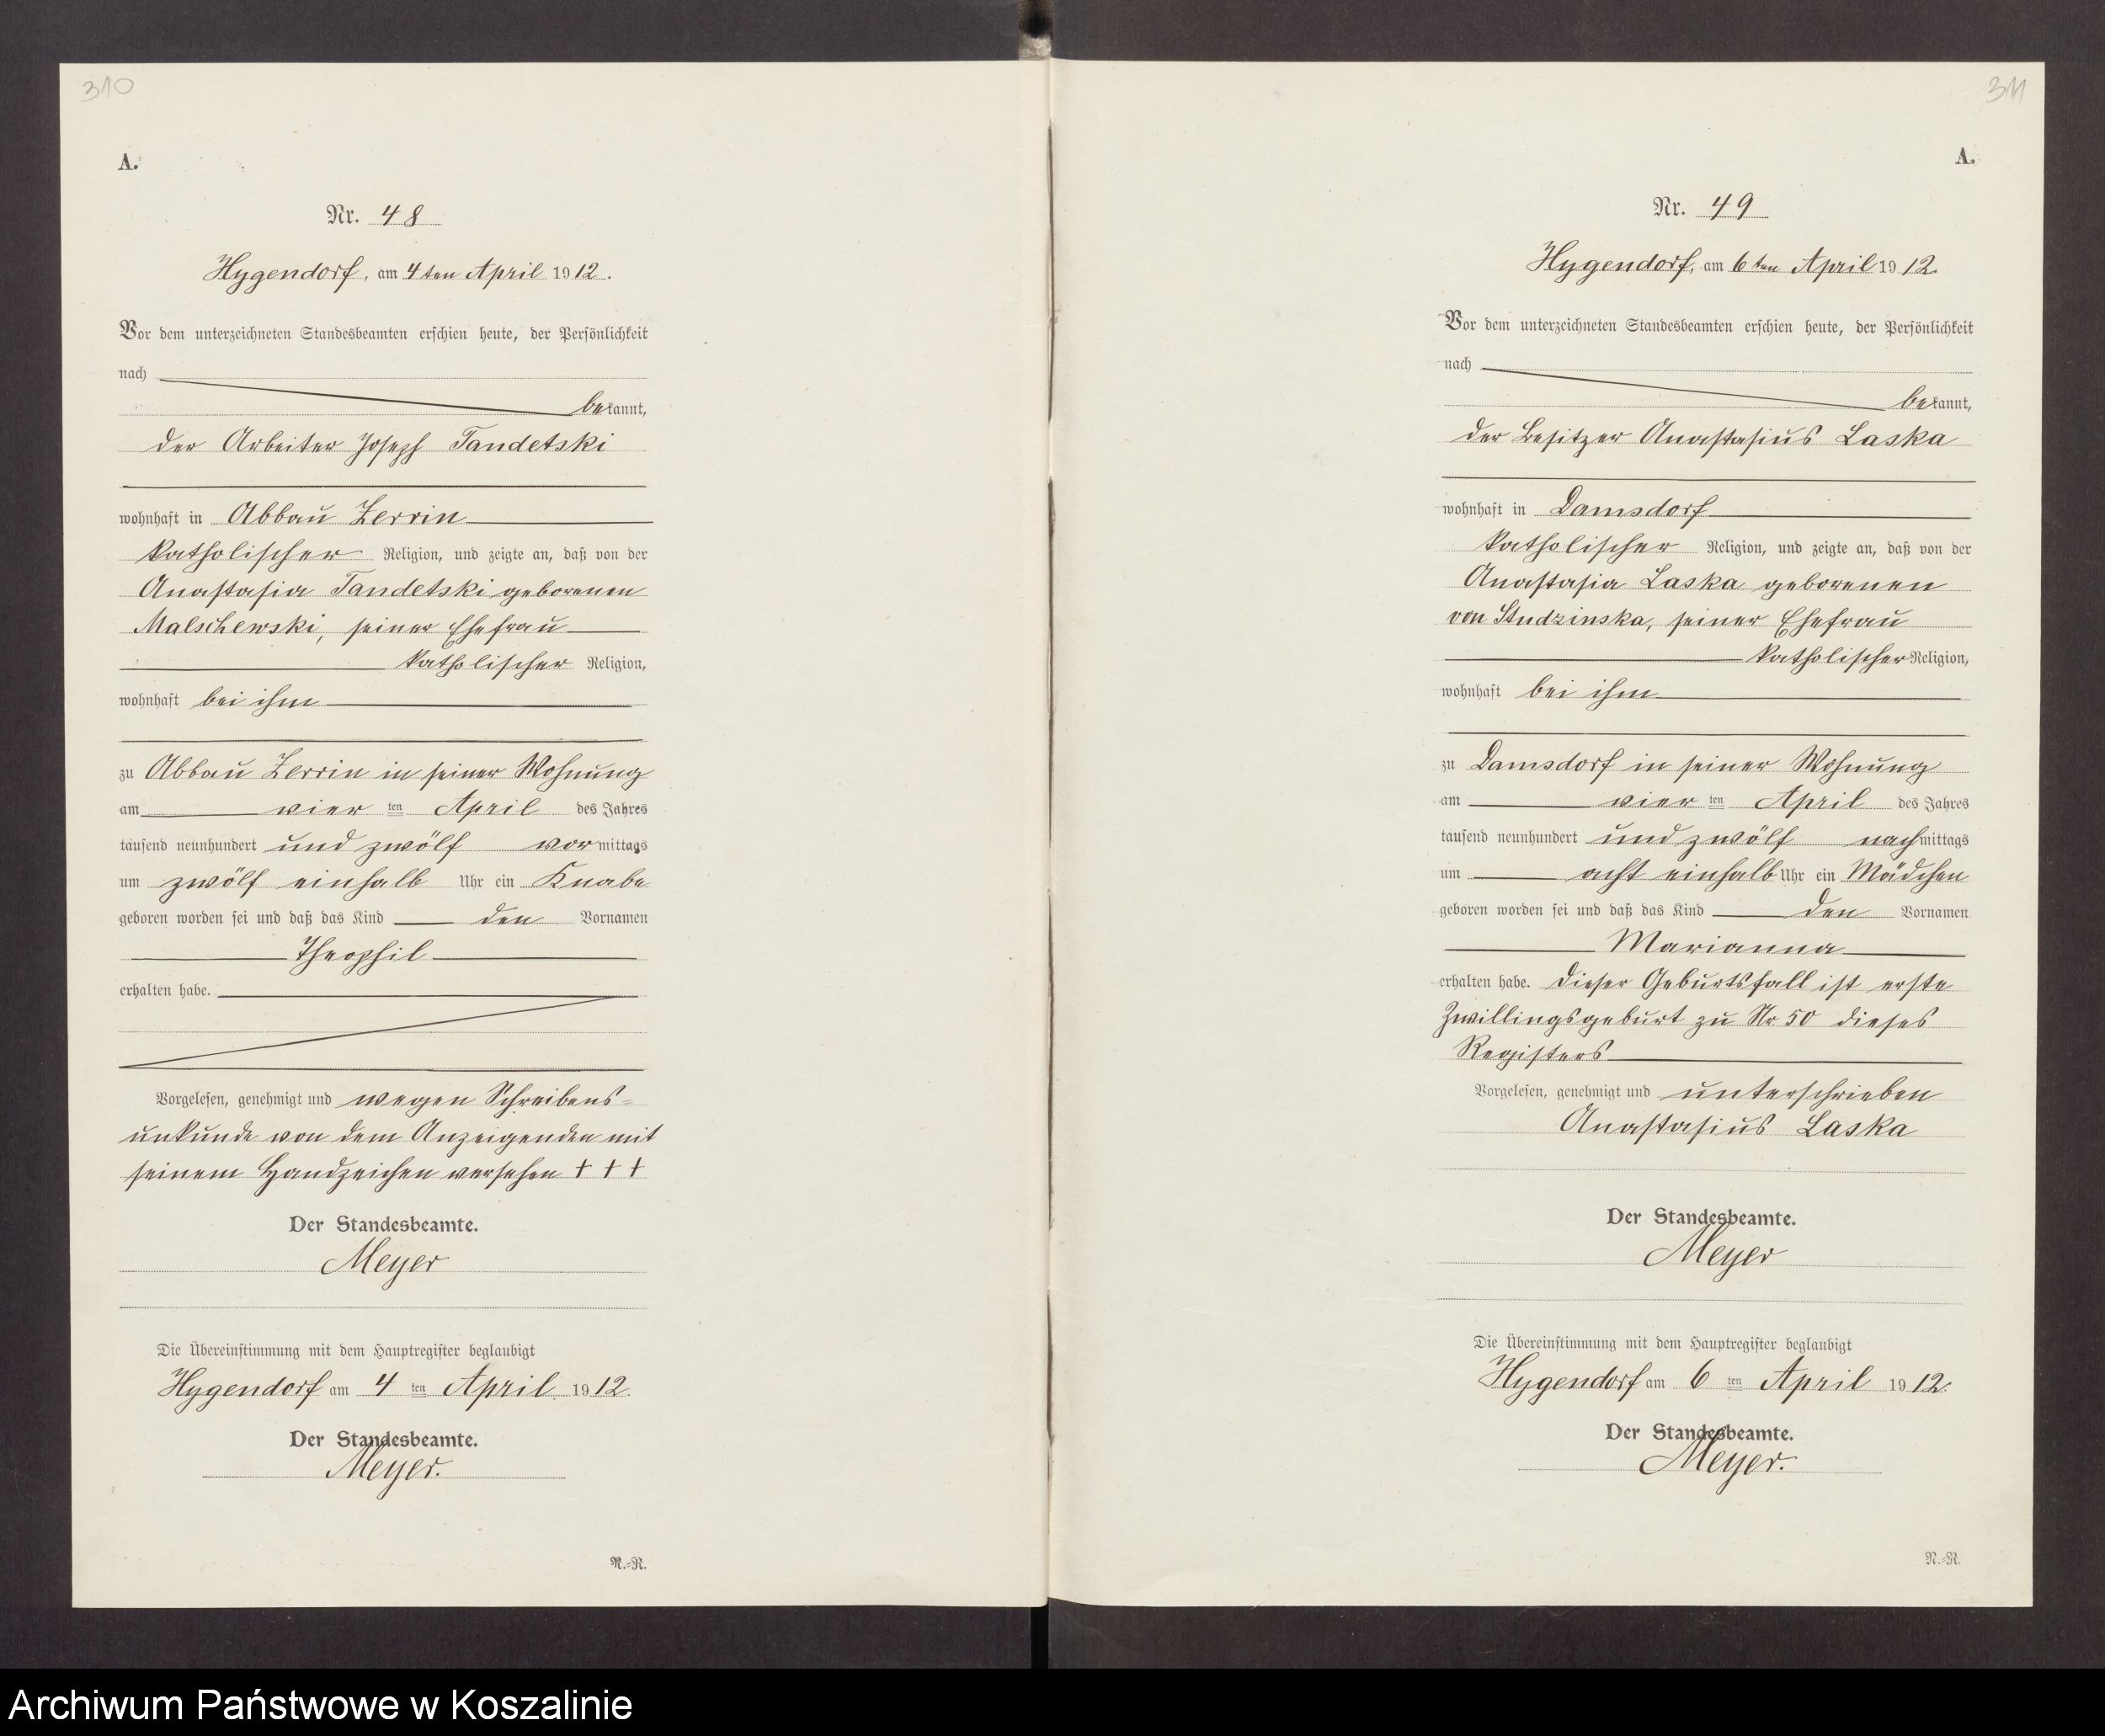 310
A.
Nr. 48
Hygendorf, am 4ten April 1912.
Vor dem unterzeichneten Standesbeamten erschien heute, der Persönlichkeit
nach
bekannt,
der Arbeiter Joseph Tandetski
wohnhaft in Abbau Zerrin
katholischer Religion, und zeigte an, daß von der
Anastasia Tandetski geborenen
Malschewski, seiner Ehefrau
katholischer Religion,
wohnhaft bei ihm
zu Abbau Zerrin in seiner Wohnung
am vier ten April des Jahres
tausend neunhundert und zwölf vormittags
um zwölf einhalb Uhr ein Knabe
geboren worden sei und daß das Kind den Vornamen
Theophil
erhalten habe.
Vorgelesen, genehmigt und wegen Schreibens-
unkunde von dem Anzeigenden mit
seinem Handzeichen versehen + + +
Der Standesbeamte.
Meyer
Die Übereinstimmung mit dem Hauptregister beglaubigt
Hygendorf am 4 ten April 1912.
Der Standesbeamte.
Meyer.
N.-N.
311
A.
Nr. 49
Hygendorf, am 6ten April 1912.
Vor dem unterzeichneten Standesbeamten erschien heute, der Persönlichkeit
nach
bekannt,
der Besitzer Anastasius Laska
wohnhaft in Damsdorf
katholischer Religion, und zeigte an, daß von der
Anastasia Laska geborenen
von Studzinska, seiner Ehefrau
katholischer Religion,
wohnhaft bei ihm
zu Damsdorf in seiner Wohnung
am vier ten April des Jahres
tausend neunhundert und zwölf nachmittags
um acht einhalb Uhr ein Mädchen
geboren worden sei und daß das Kind den Vornamen
Marianna
erhalten habe. Dieser Geburtsfall ist erste
Zwillingsgeburt zu Nr 50 dieses
Registers
Vorgelesen, genehmigt und unterschrieben
Anastasius Laska
Der Standesbeamte.
Meyer
Die Übereinstimmung mit dem Hauptregister beglaubigt
Hygendorf am 6 ten April 1912.
Der Standesbeamte.
Meyer.
N.-N.
Archiwum Państwowe w Koszalinie